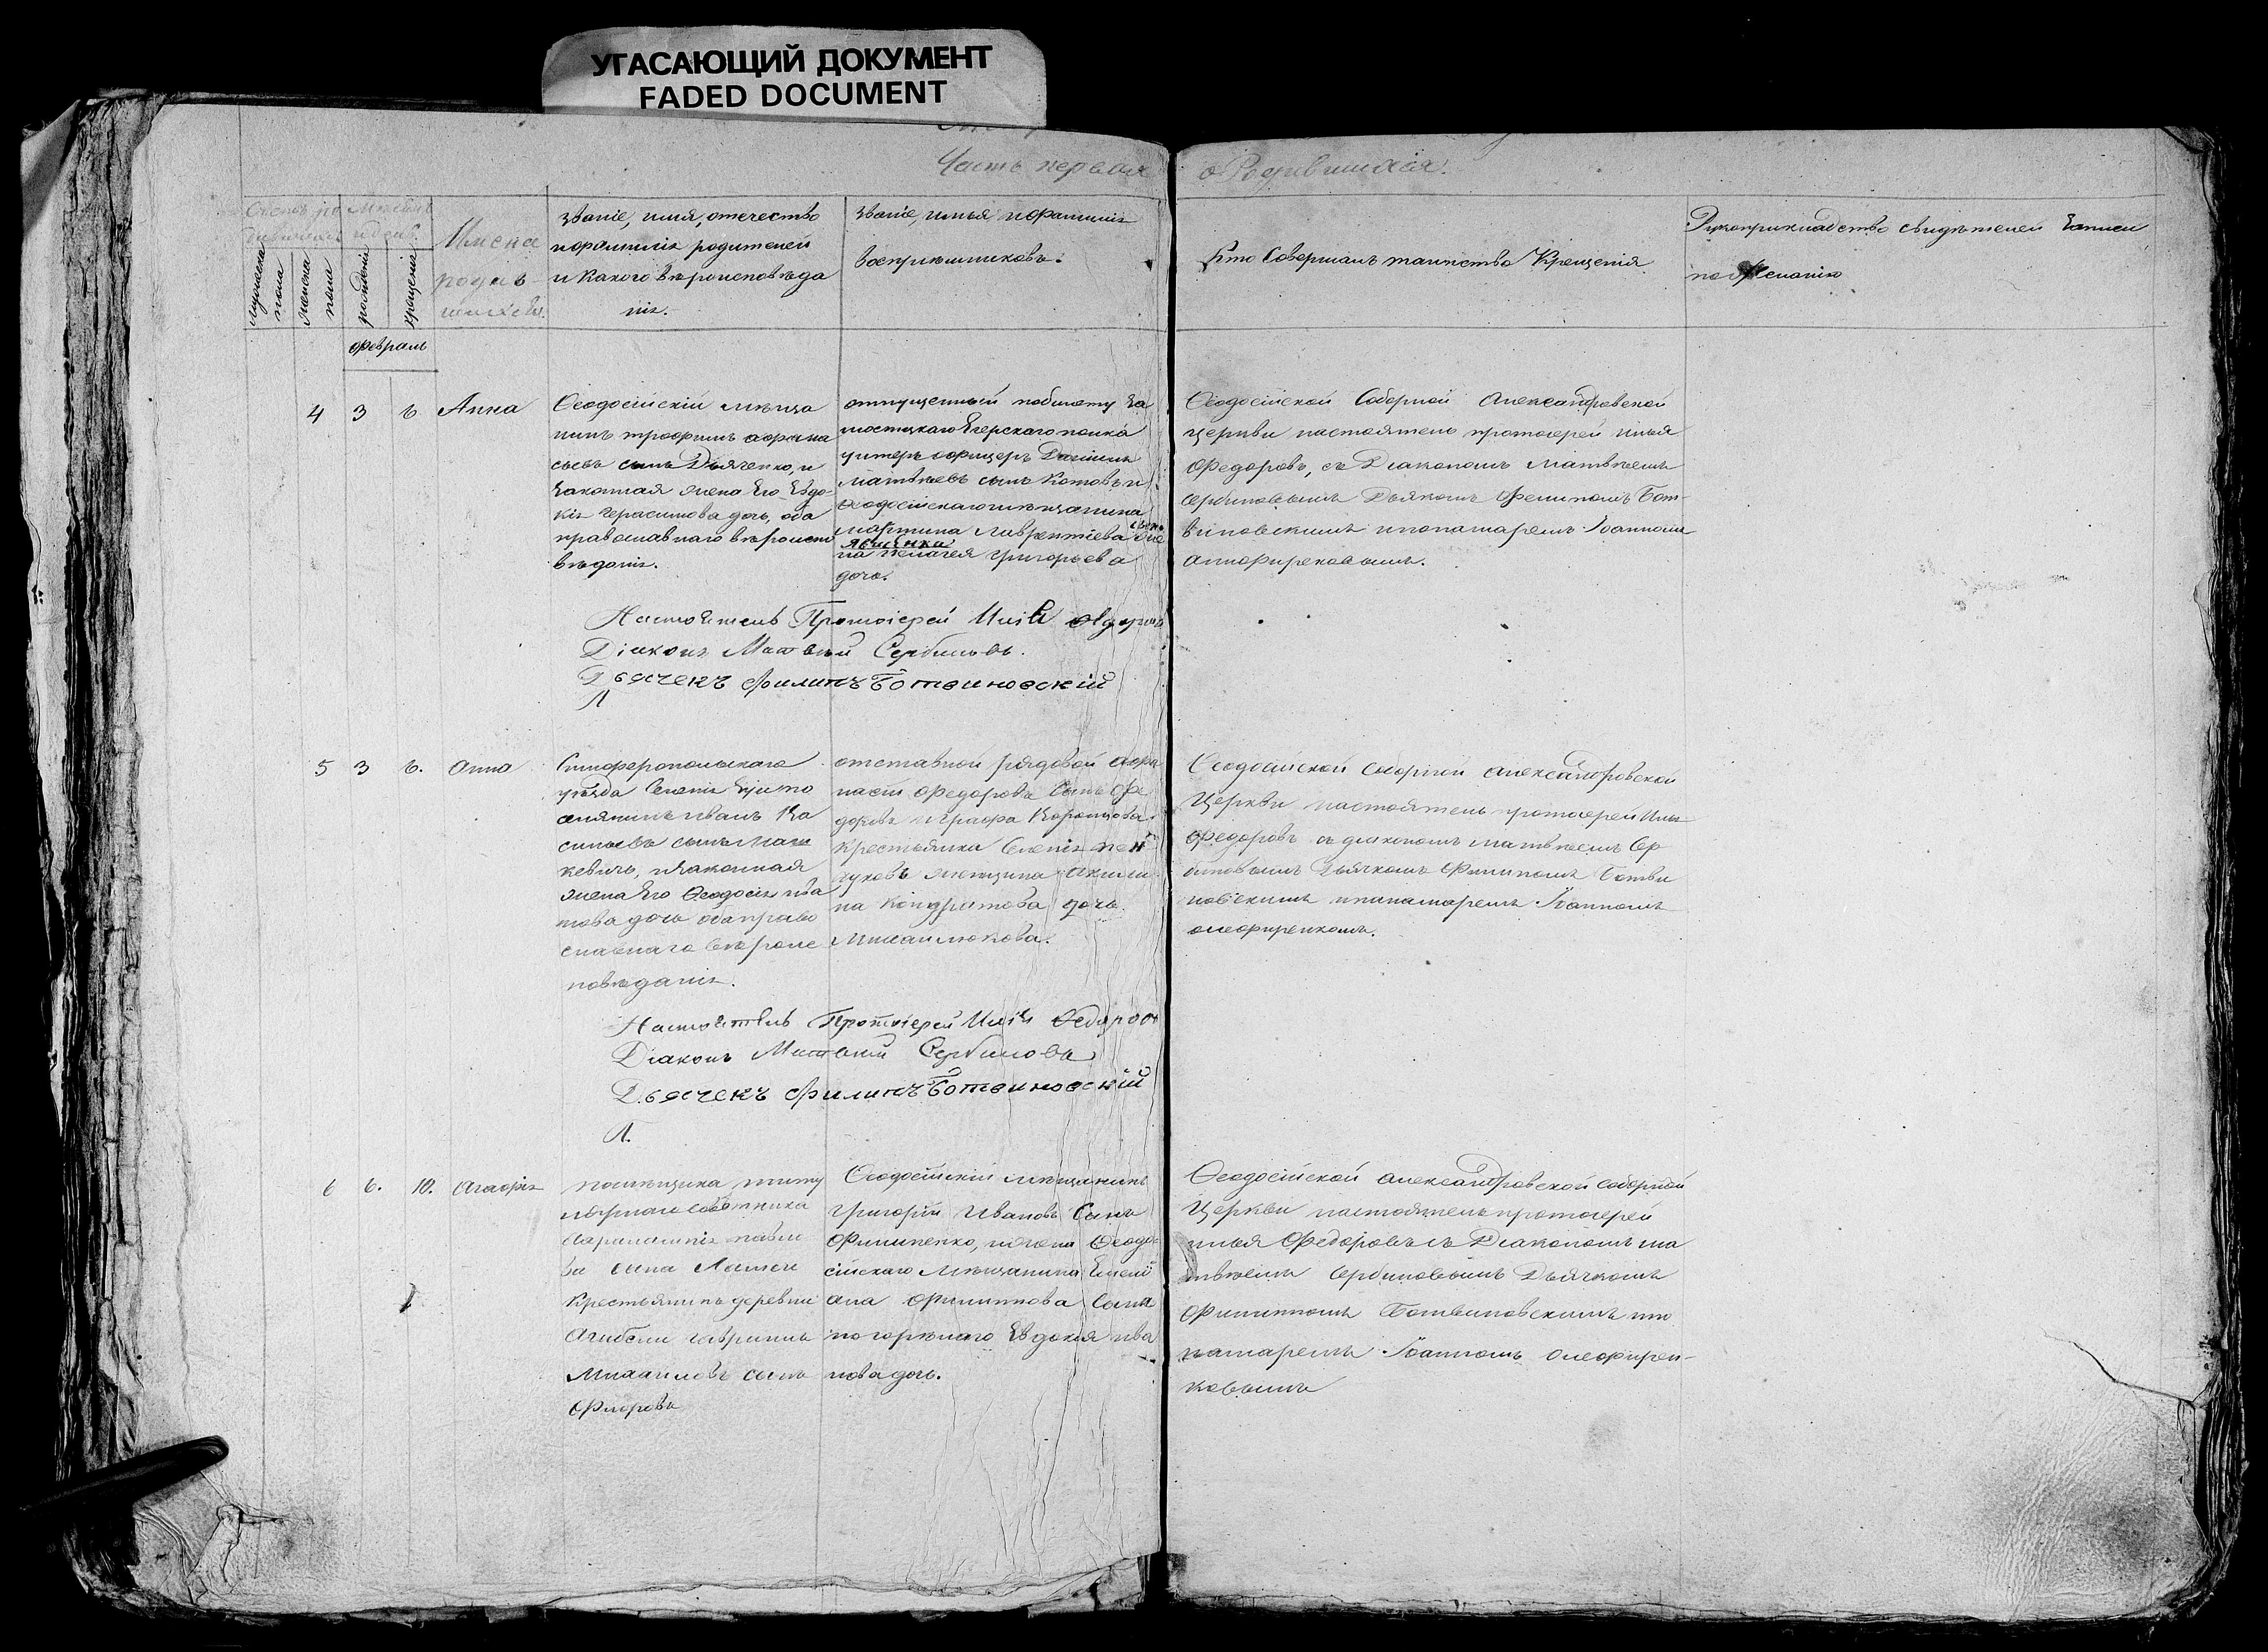 УГАСАЮЩИЙ ДОКУМЕНТ
FADED DOCUMENT
Часть первая о Родившихся.
мужеска пола
женска пола
рожденія
крещенія
Имена
родив-
шихся.
Званіе, имя, отечество
и фамилія родителей
и какого вѣроисповѣда
нія.
Званіе, имья и фамилія
воспріемниковъ.
Кто Совершалъ таинство Крещенія
Рукоприкладство свидѣтелей записи
по желанію
Февраль
4 3 6 Анна
Ѳеодосійскій мѣща
нинъ трофимъ афана
сьевъ сынъ Дьяченко, и
законная жена Его Евдо-
кія Герасимова дочь, оба
православнаго вѣроиспо
вѣданія.
отпущенный побилету
Егерскаго полка
унтеръ офицеръ
матвѣевъ сынъ Котовъ и
Ѳеодосійскаго мѣщанина
мартина Лаврентіева
на Пелагея григорьева
дочь.
Ѳеодосійской Соборной Александровской
церкви настоятель протоіерей илья
Федоровъ, съ Діакономъ матвѣемъ
сербиновымъ Дьякомъ Филипомъ Бот-
виновскимъ ипонамаремъ Іоанномъ
Настоятель Протоіерей Илія Ѳедоровъ
Діаконъ Матвѣй Сербиновъ.
Дьячекъ Филипъ Ботвиновскій
П
5 3 6. Анна
Симферопольскаго
уѣзда Селенія
иванъ Ка
кевичь, изаконная
жена Его Ѳеодосія ива
нова дочь оба право
славнаго вѣроис
повѣданія.
отставной рядовой афа
насій Федоровъ Сынъ Фе
доровъ играфа Воронцова
крестьянки Селенія
женщина акили
на Кондратова дочь
Михайлюкова.
Ѳеодосійской соборной александровской
Церкви настоятель протоіерей Илья
Федоровъ съ діакономъ матвѣемъ Сер
биновымъ Дьячкомъ Филипомъ Ботви
новскимъ ипанамаремъ Іоанномъ
олефиренкомъ.
Настоятель Протоіерей Илія Ѳедоровъ
Діаконъ Матвѣй Сербиновъ
Дьячекъ Филипъ Ботвиновскій
П.
6 6. 10. Агафія
помѣщика титу
лярнаго совѣтника
Харлампія павло
ва сына
Крестьянинъ деревни
гавриилъ
Михаиловъ сынъ
Флоровъ
Ѳеодосійскій мѣщанинъ
григорій Ивановъ Сынъ
Филипенко, ижена Ѳеодо-
сійскаго мѣщанина Емелі
ана Филиппова Сына
погорѣлаго Евдокія ива
нова дочь.
Ѳеодосійской александровской соборной
Церкви настоятель протоіерей
илья Федоровъ съ Діакономъ ма
твѣемъ сербиновымъ Дьячкомъ
Филиппомъ Ботвиновскимъ ипо
намаремъ Іоанномъ олефирен-
ковымъ